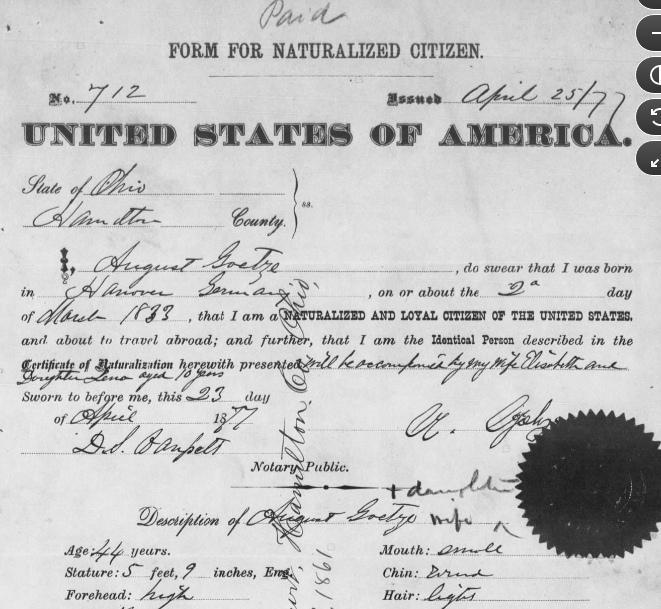 Paid
FORM FOR NATURALIZED CITIZEN.
No. 712 Issued April 25/77
UNITED STATES OF AMERICA.
State of Ohio
Hamilton County. } ss.
I, August Goetze, do swear that I was born
in Hanover Germany, on or about the 2d day
of March 1833, that I am a NATURALIZED AND LOYAL CITIZEN OF THE UNITED STATES,
and about to travel abroad; and further, that I am the Identical Person described in the
Certificate of Naturalization herewith presented will be accompanied by my wife Elisabeth and
Daughter Lena aged 10 years
Sworn to before me, this 23 day
of April 1877
Notary Public.
+ daughter
Description of August Goetze wife
Age: 44 years. Mouth: small
Stature: 5 feet, 9 inches, Eng. Chin: round
Forehead: high Hair: light
Hamilton Co Ohio,
1861